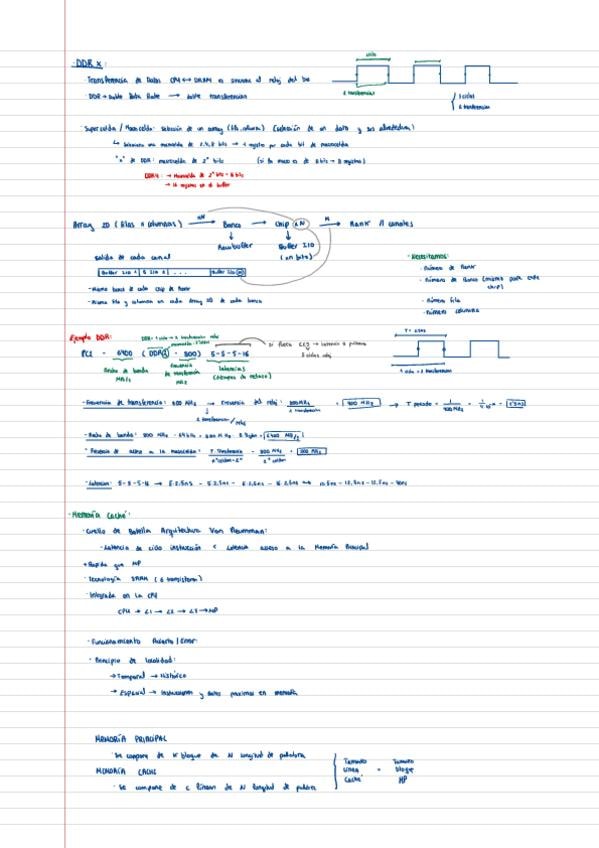 - DDR x:
ciclo
- Transferencia de Datos CPU ↔ DRAM es síncrona al reloj del bus
- DDR → Double Data Rate → doble transferencia
2 transferencias
1 ciclo
2 transferencias
- Supercelda / Macrocelda: selección de un array (fila, columna) (selección de un dato y sus alrededores)
↳ Selecciona una macrocelda de 2, 4, 8 bits → 1 registro por cada bit de macrocelda
"x" de DDR: macrocelda de 2^x bits (si la macro es de 8 bits → 8 registros)
DDR4: → Macrocelda de 2^4 bits = 16 bits
→ 16 registros en el buffer
Array 2D (filas x columnas) → Banco → chip → Rank → canales
xN
M
Row buffer
Buffer I/O
(en bits)
Salida de cada canal
Buffer I/O 1 | B I/O 2 | ... | Buffer I/O
- Mismo banco de cada chip de Rank
- Misma fila y columna en cada Array 2D de cada banco
- Necesitamos:
- Número de Rank
- Número de Banco (mismo para cada chip)
- Número fila
- Número columna
Ejemplo DDR:
DDR: 1 ciclo → 2 transferencias reloj
PC2 - 6400 (DDR2 - 800) 5-5-5-16
si fuera CL9 → latencia a primera
Ancho de banda
MB/s
Frecuencia de transferencia
MHz
latencias
(tiempos de retardo)
1 ciclo = 2 transferencias
- Frecuencia de transferencia: 800 MHz → Frecuencia del reloj: 800 MHz / 2 transferencias = 400 MHz → T periodo = 1 / 400 MHz
2 transferencias / reloj
- Ancho de banda: 800 MHz · 64 bits = 800 MHz · 8 bytes = 6400 MB/s
- Latencias: 5-5-5-16 →
- Memoria Caché:
- Cuello de Botella Arquitectura Von Neumman:
- Latencia de ciclo instrucción < Latencia acceso a la Memoria Principal
+ Rápida que MP
- Tecnología SRAM (6 transistores)
- Integrada en la CPU
CPU → L1 → L2 → L3 → MP
- Funcionamiento Acierto / Error:
- Principio de localidad:
→ Temporal → Histórico
→ Espacial → Instrucciones y datos próximos en memoria
MEMORIA PRINCIPAL
- Se compone de M bloques de N longitud de palabra
MEMORIA CACHÉ
- Se compone de C líneas de N longitud de palabra
Tamaño Línea Caché = Tamaño Bloque MP